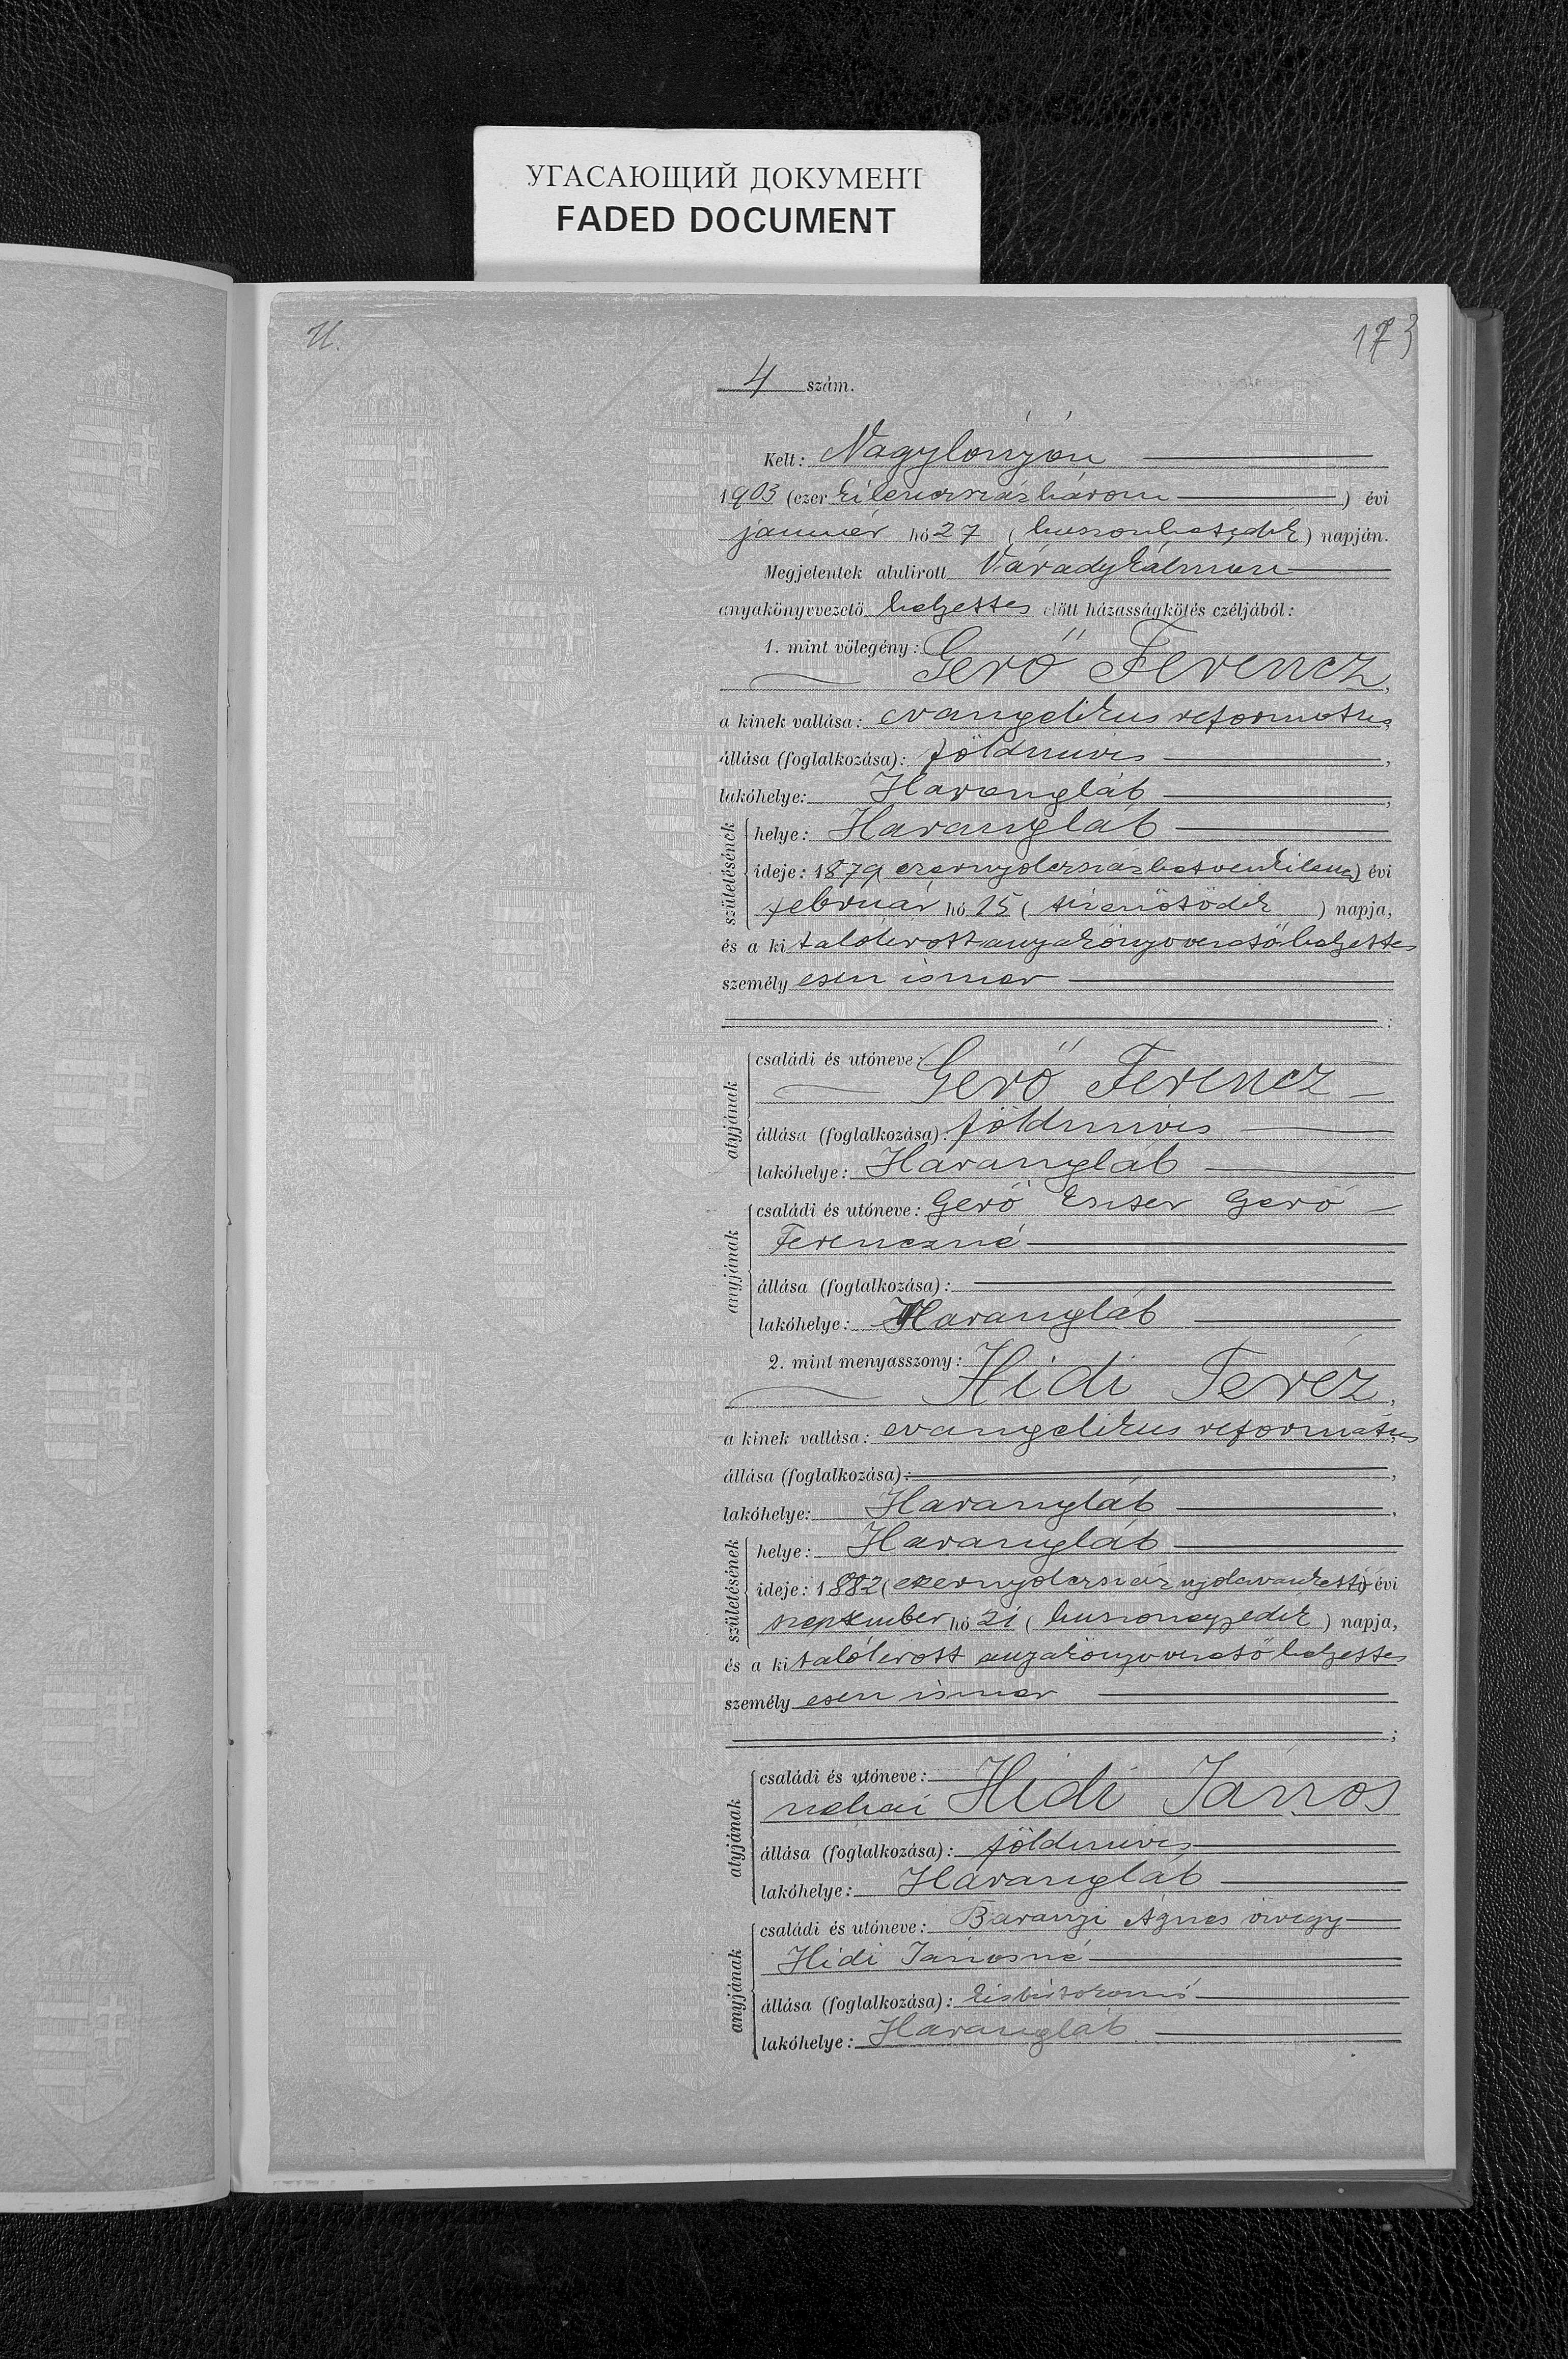 УГАСАЮЩИЙ ДОКУМЕНТ
FADED DOCUMENT
173
4 szám.
Kelt: Nagylónyón
1903 (ezer kilenczszázhárom) évi
január hó 27 (huszonhetedik) napján.
Megjelentek alulirott Várady Kálmán
anyakönyvvezető helyettes előtt házasságkötés czéljából:
1. mint vőlegény:
Gerő Ferencz,
a kinek vallása: evangelikus református,
állása (foglalkozása): földmives,
lakóhelye: Harangláb,
születésének
helye: Harangláb
ideje: 1879 (ezernyolczszázhetvenkilencz) évi
február hó 15 (tizenötödik) napja,
és a kit alólirott anyakönyvvezetőhelyettes
személyesen ismer
;
atyjának
családi és utóneve:
Gerő Ferencz
állása (foglalkozása): földmives
lakóhelye: Harangláb
anyjának
családi és utóneve: Gerő Eszter Gerő
Ferenczné
állása (foglalkozása):
lakóhelye: Harangláb
2. mint menyasszony:
Hidi Teréz,
a kinek vallása: evangelikus református
állása (foglalkozása):,
lakóhelye: Harangláb,
születésének
helye: Harangláb
ideje: 1882 (ezernyolczszáznyolczvankettő) évi
szeptember hó 21 (huszonegyedik) napja,
és a kit alólirott anyakönyvvezetőhelyettes
személyesen ismer
;
atyjának
családi és utóneve:
néhai Hidi János
állása (foglalkozása): földmives
lakóhelye: Harangláb
anyjának
családi és utóneve: Baranyi Ágnes özvegy
Hidi Jánosné
állása (foglalkozása): kisbirtokosnő
lakóhelye: Harangláb